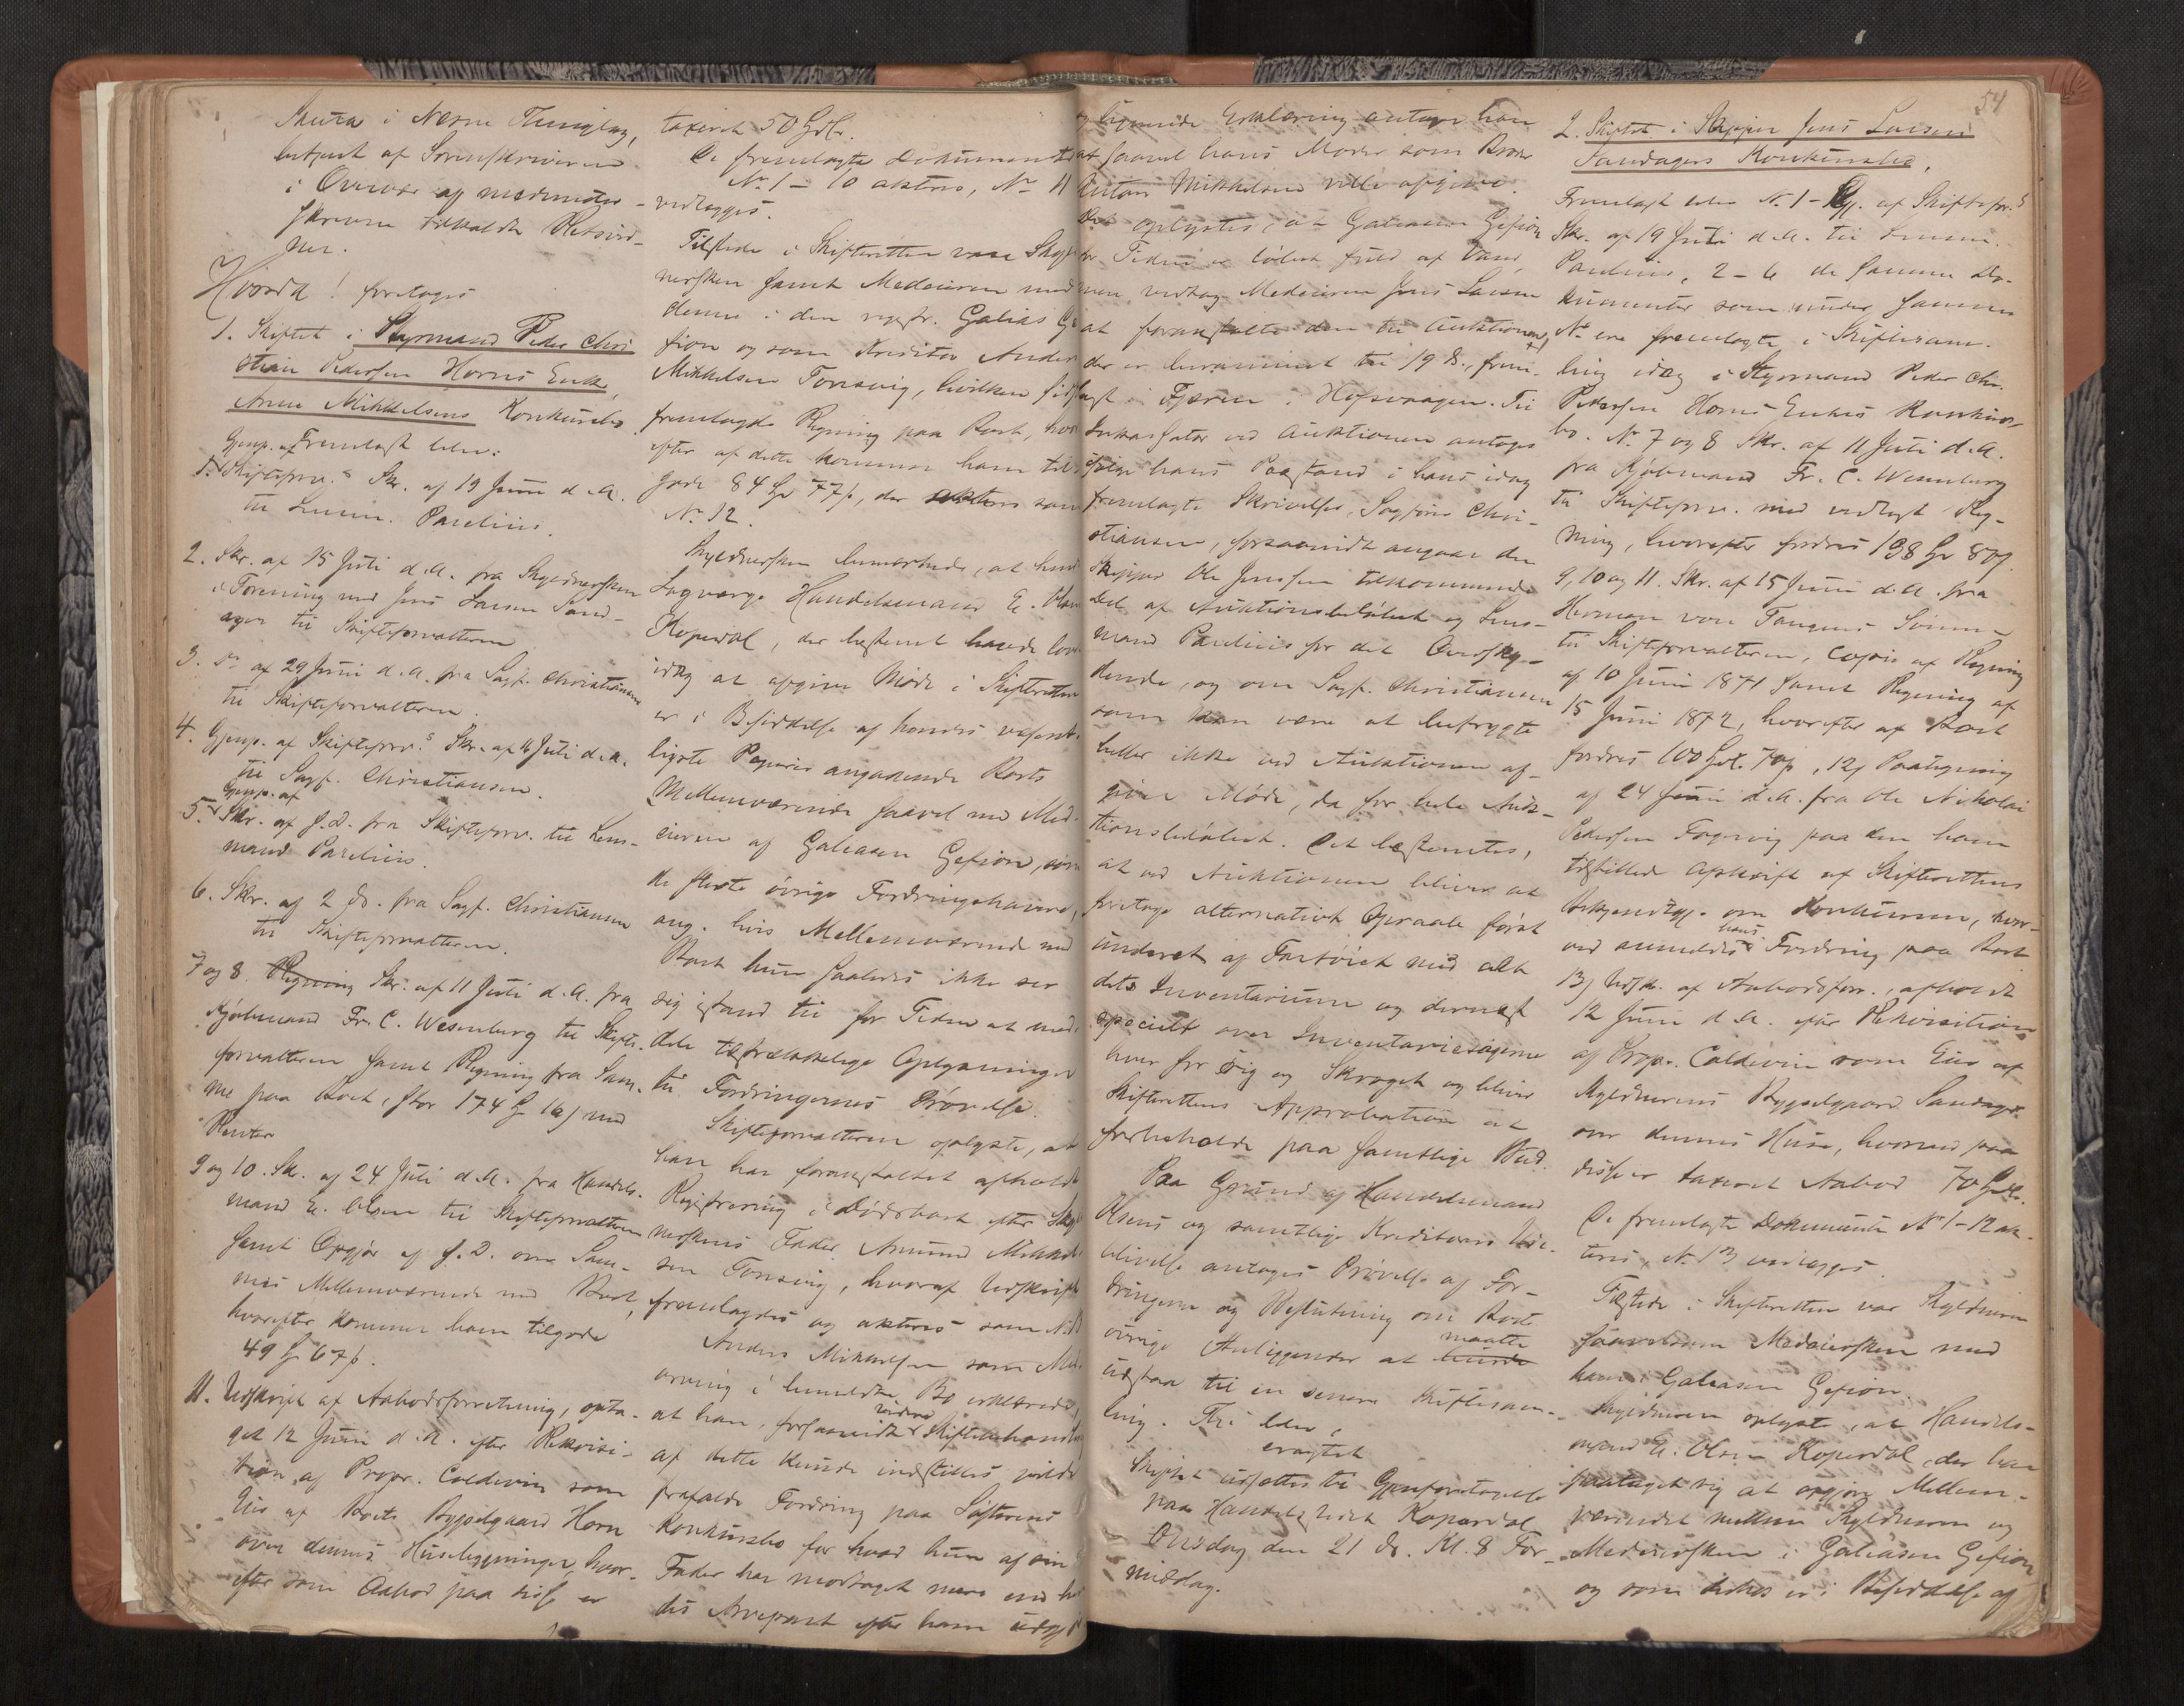 Skuta i Nesne Thinglag,
betjent af Sorenskriveren
i Overvær af medunder-
skrevne tilkaldte Retsvid-
ner.
Hvorda! foretoges
1. Skiftet i Styrmand Peder Chri
stian Pedersen Horns Enke,
Anne Mikkelsens Konkursbo.
Fremlagt blev:
1. Gjenp. af Skifteforv.s Skr. af 19 Juni d.A.
til Lensm. Parelius.
2. Skr. af 15 Juli d.A. fra Skyldnersken
i Forening med Jens Larsen Sand-
ager til Skifteforvalteren
3. Do af 29 Juni d.A. fra Sagf. Christiansen
til Skifteforvalteren.
4. Gjenp. af Skifteforv.s Skr. af 4 Juli d.A.
til Sagf. Christiansen.
Gjenp. af
5. Skr. af s.D. fra Skifteforv. til Lens-
mand Parelius.
6. Skr. af 2 ds. fra Sagf. Christiansen
til Skifteforvalteren.
7 og 8. Regning Skr. af 11 Juli d.A. fra
Kjøbmand Fr. C. Wesenberg til Skifte-
forvalteren samt Regning fra Sam-
me paa Boet, stor 174 med
Renter
9 og 10. Skr. af 24 Juli d.A. fra Handels-
mand E. Olsen til Skifteforvalteren
samt Opgjør af s.D. over Sam-
mes Mellemværende med Boet,
hvorefter kommer ham tilgode
49 67 s.
11. Udskrift af Aabodsforretning, opta-
get 12 Juni d.A. efter Rekvisi-
tion af Propr. Coldevin som
Eier af Boets Bygselgaard Horn
over dennes Husebygninger, hvor-
efter som Aabod paa disse er
taxeret 50 Spdl.
De fremlagte Dokumenter
No 1 - 10 akteres, No 11
vedlægges.
Tilstede i Skifteretten vare Skyld-
nersken samt Medeieren med
denne i den regstr. Galias Ge
fion og som Kreditor Anders
Mikkelsen Tonsvig, hvilken sidste
fremlagde Regning paa Boet, hvor
efter af dette kommer ham til-
gode 84 77 s, der akteres som
No 12.
Skyldnersken bemærkede, at hendes
Lagværge Handelsmand E. Olsen
Kopardal, der bestemt havde lovet
idag at afgive Møde i Skifteretten
er i Besiddelse af hendes væsent-
ligste Papirer angaaende Boets
Mellemværende saavel med Med-
eieren af Galeasen Gefion, som
de fleste øvrige Fordringshavere,
ang. hvis Mellemværende med
Boet hun saaledes ikke ser
sig istand til for Tiden at med-
dele tilstrækkelige Oplysninger
til Fordringernes Prøvelse.
Skifteforvalteren oplyste, at
han har foranstaltet afholdt
Registrering i Dødsboet efter Skyld-
nerskens Fader Amund Mikkel-
sen Tonsvig, hvoraf Udskrift
fremlagdes og akteres som No 13
Anders Mikkelsen som Med-
arving i bemeldte Bo erklærede,
videre
at han, forsaavidt Skiftebehandling
af dette kunde indstilles vilde
frafalde Fordring paa Søsterens
Konkursbo for hvad hun af sin
Fader har modtaget mere end hen
des Arvepart efter ham udgjør
og lignende Erklæring antager han
at saavel hans Moder som Broder
Anton Mikkelsen ville afgive.
Det oplystes, at Galeasen Gefion
for Tiden er løbet fuld af Vand,
men vedtog Medeieren Jens Larsen
at foranstalte den til Auktionen,
der er berammet til 19 ds., frem-
lagt i Fjæren i Hofsvaagen. Til
Inkassator ved Auktionen antoges
ifølge hans Paastand i hans idag
fremlagte Skrivelse, Sagfører Chri-
stiansen, forsaavidt angaar den
Skipper Ole Jenssen tilkommende
Del af Auktionsbeløbet og Lens-
mand Parelius for det Oversky-
dende, og om Sagf. Christiansen
som kan være at befrygte
heller ikke ved Auktionen af-
giver Møde, da for hele Auk-
tionsbeløbet. Det bestemtes,
at ved Auktionen bliver at
foretage alternativt Opraab først
underet af Fartøiet med alt
dets Inventarium og dernæst
specielt over Inventariesagerne
hver for sig og Skroget og bliver
Skifterettens Approbation at
forbeholde paa samtlige Bud.
Paa Grund af Handelsmand
Olsens og samtlige Kreditorers Ude-
blivelse antoges Prøvelse af For-
dringerne og Beslutning om Boets
maatte
øvrige Anliggender at burde
udstaa til en senere Skiftesam-
ling. Thi blev
eragtet
Skiftet udsættes til Gjenforetagelse
paa Handelsstedet Kopardal
Onsdag den 21 ds. Kl. 8 For-
middag.
54
2. Skiftet i Skipper Jens Larsen
Sandagers Konkursbo.
Fremlagt blev No 1 - Gj. af Skifteforv.s
Skr. af 19 Juli d.A. til Lensm.
Parelius, 2 - 6 de samme Do-
kumenter som under samme
No ere fremlagte i Skiftesam-
ling idag i Styrmand Peder Chr.
Pedersen Horns Enkes Konkurs-
bo. No 7 og 8 Skr. af 11 Juli d.A.
fra Kjøbmand Fr. C. Wesenberg
til Skifteforv. med vedlagt Reg-
ning, hvorefter fordres 138 80 s.
9, 10 og 11. Skr. af 15 Juni d.A. fra
Herman von Tangens Sønner
til Skifteforvalteren, Copie af Regning
af 10 Juni 1871 samt Regning af
15 Juni 1872, hvorefter af Boet
fordres 100 Spdl. 70 s, 12) Paategning
af 24 Juni d.A. fra Ole Nikolai
Pedersen Fagervig paa den ham
tilstillede Afskrift af Skifterettens
Bekjendtgj. om Konkursen, hvor-
hans
ved anmeldes Fordring paa Boet
13) Udskr. af Aabodsforr., afholdt
12 Juni d.A. efter Rekvisition
af Propr. Coldevin som Eier af
Skyldnerens Bygselgaard Sandager
over dennes Huse, hvorved paa
disse er taxeret Aabod 70 Spdl.
De fremlagte Dokumenter No 1 - 12 ak-
teres, No 13 vedlægges.
Tilstede i Skifteretten var Skyldneren
saavelsom Medeiersken med
ham i Galeasen Gefion.
Skyldneren oplyste, at Handels-
mand E. Olsen Kopardal, der har
paataget sig at opgjøre Mellem-
værendet mellem Skyldneren og
Medeiersken i Galeasen Gefion
og som er i Besiddelse af